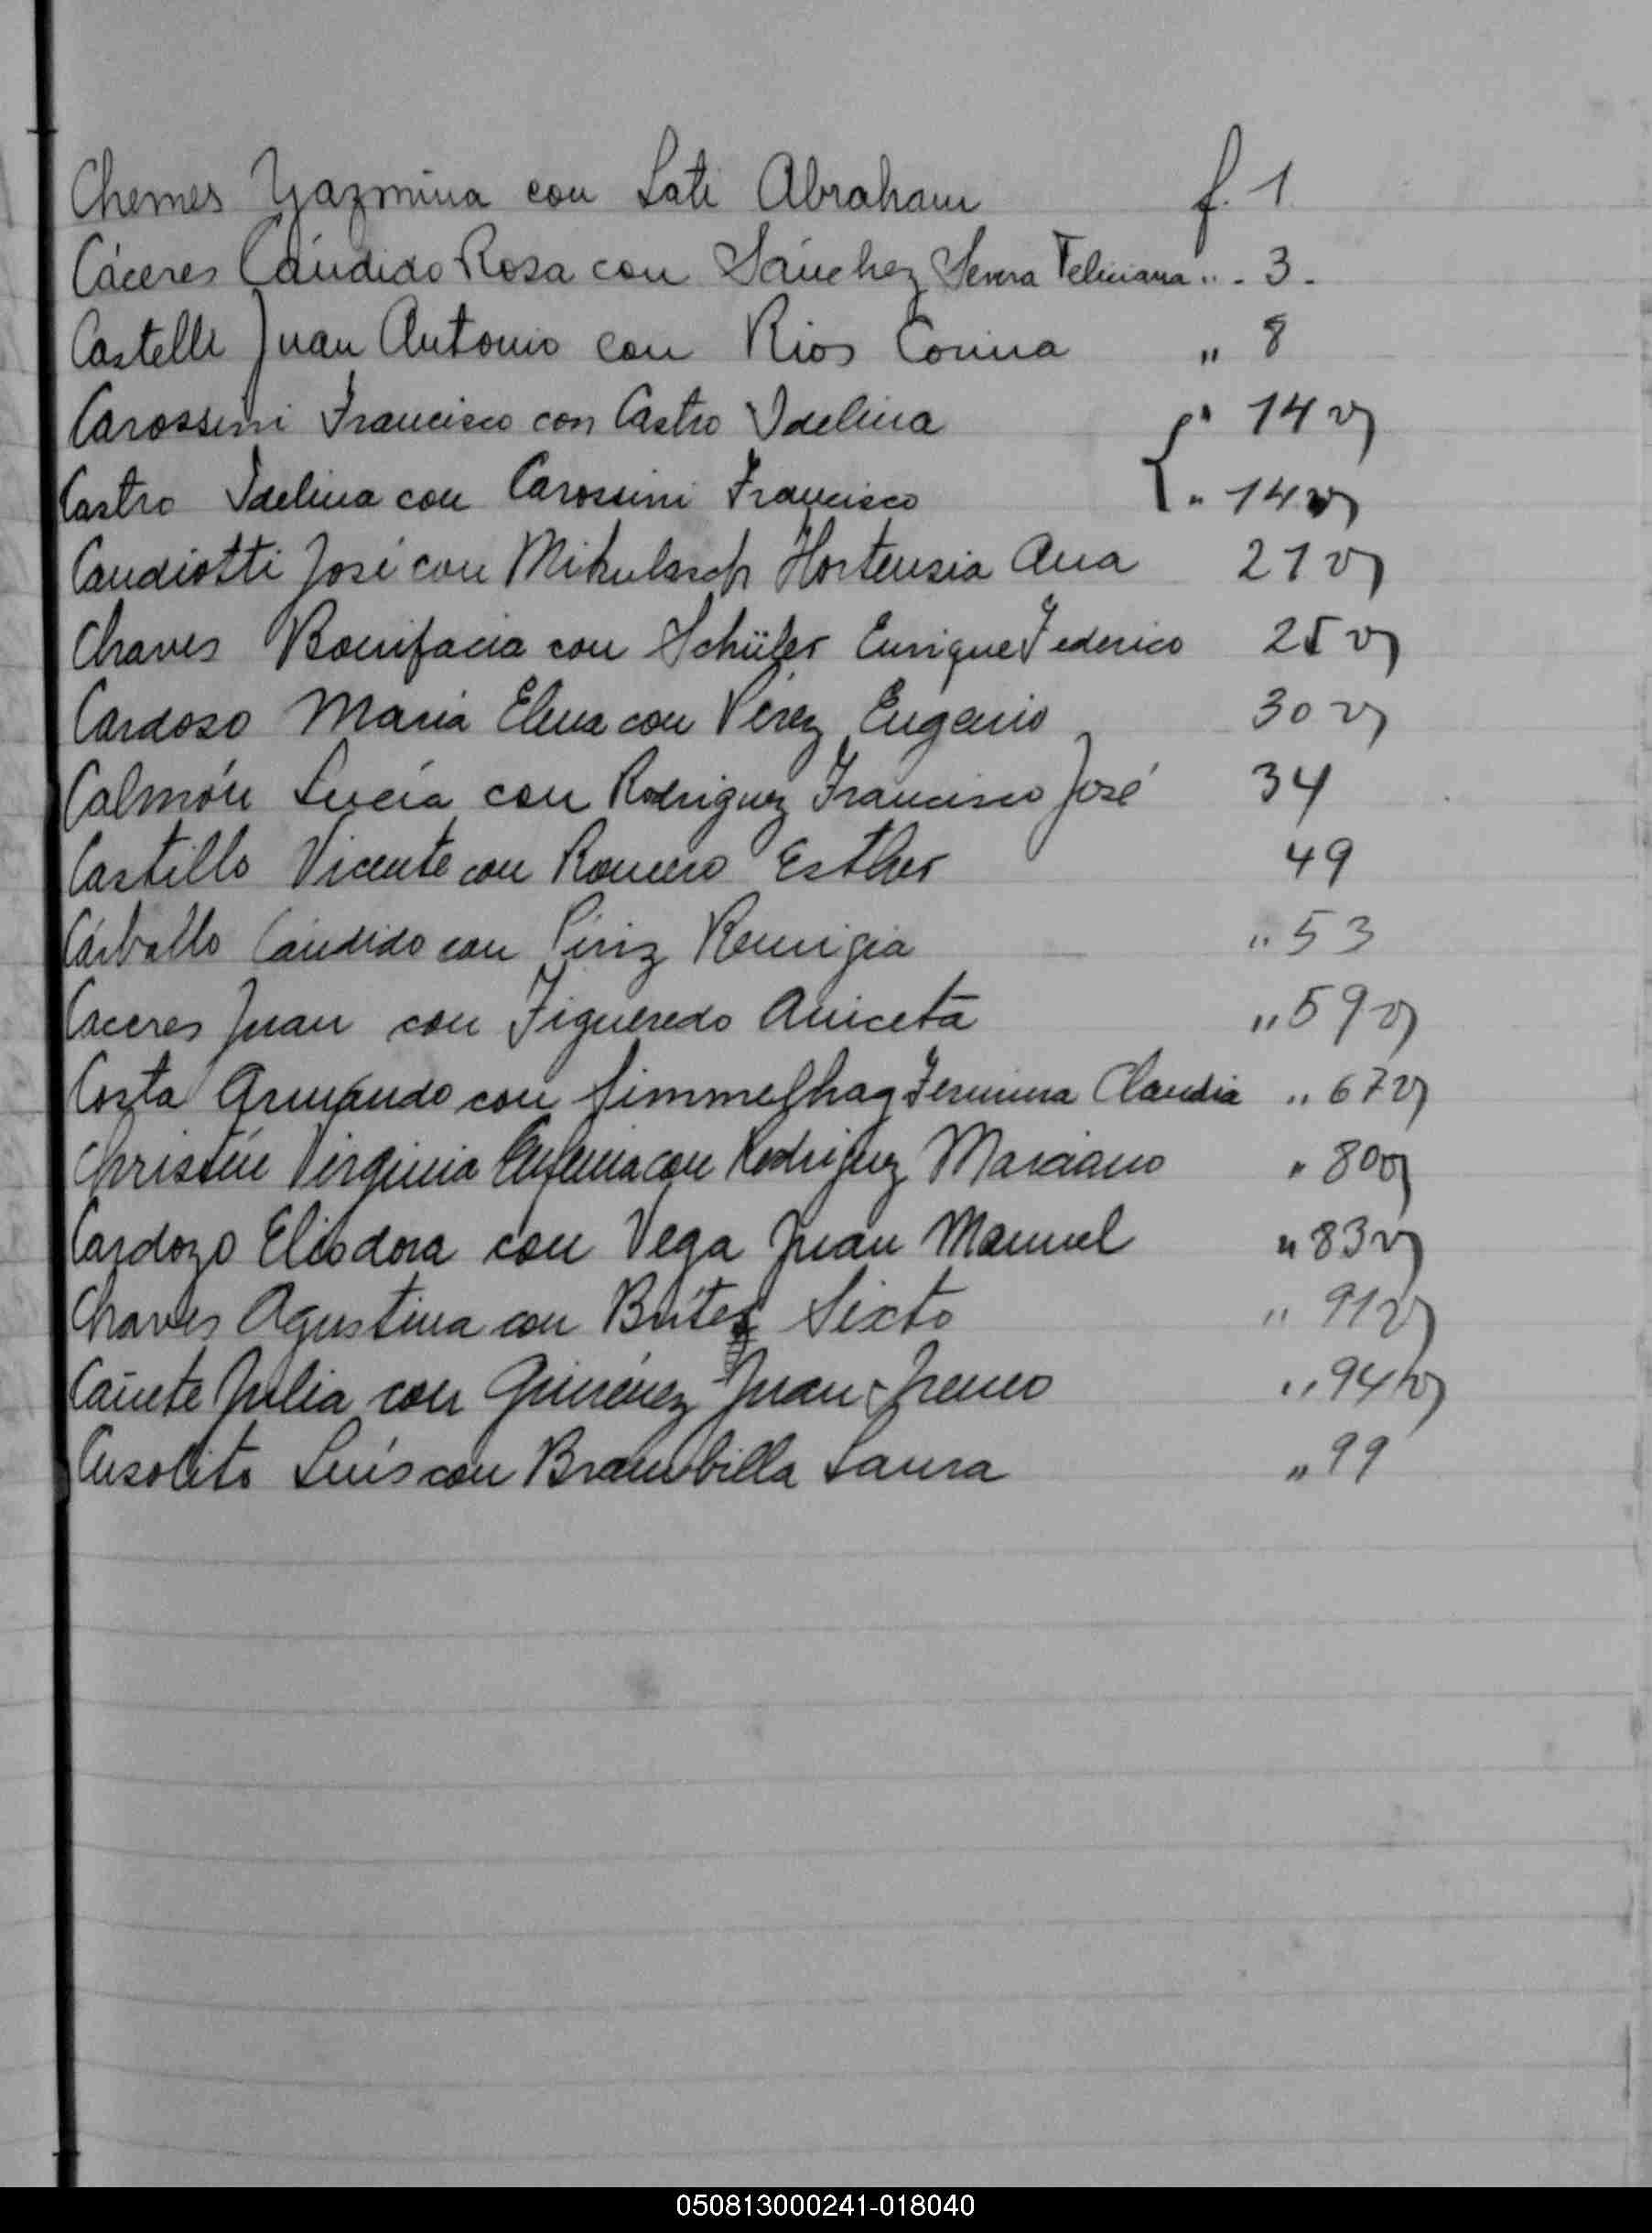 Chemes Yazmina con Lati Abraham f. 1
Cáceres Cándido Rosa con Sánchez Severa Feliciana " . 3 .
Castelli Juan Antonio con Rios Corina " 8
Carossini Francisco con Castro Idelina " 14 v
Castro Idelina con Carossini Francisco " 14 v
Candiotti José con Mikulasch Hortensia Ana 21 v
Chaves Bonifacia con Schüler Enrique Federico 25 v
Cardoso Maria Elena con Pérez Eugenio 30 v
Calmón Lucía con Rodriguez Francisco José 34
Castillo Vicente con Romero Esther 49
Cárballo Cándido con Píriz Remigia " 53
Caceres Juan con Figueredo Aniceta " 59 v
Costa Armando con Fermina Claudia " 67 v
Christin Virginia Eufemia con Rodriguez Marciano " 80 v
Cardozo Eliodora con Vega Juan Manuel " 83 v
Chaves Agustina con Brítez Sixto " 91 v
Cañete Julia con Giménez Juan Ireneo " 94 v
Cusolito Luís con Brambilla Laura " 99
050813000241-018040